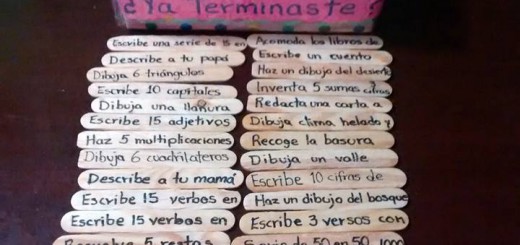 ¿Ya Terminaste?
Escribe una serie de 15 en
Describe a tu papá
Dibuja 6 triángulos
Escribe 10 capitales
Dibuja una llanura
Escribe 15 adjetivos
Haz 5 multiplicaciones
Dibuja 6 cuadrilateros
Describe a tu mamá
Escribe 15 verbos en
Escribe 15 verbos en
Resuelve 5 restas
Acomoda los libros de
Escribe un cuento
Haz un dibujo del desierto
Inventa 5 sumas cifras
Redacta una carta a
Dibuja clima helado y
Recoge la basura
Dibuja un valle
Escribe 10 cifras de
Haz un dibujo del bosque
Escribe 3 versos con
de 50 en 50 1000